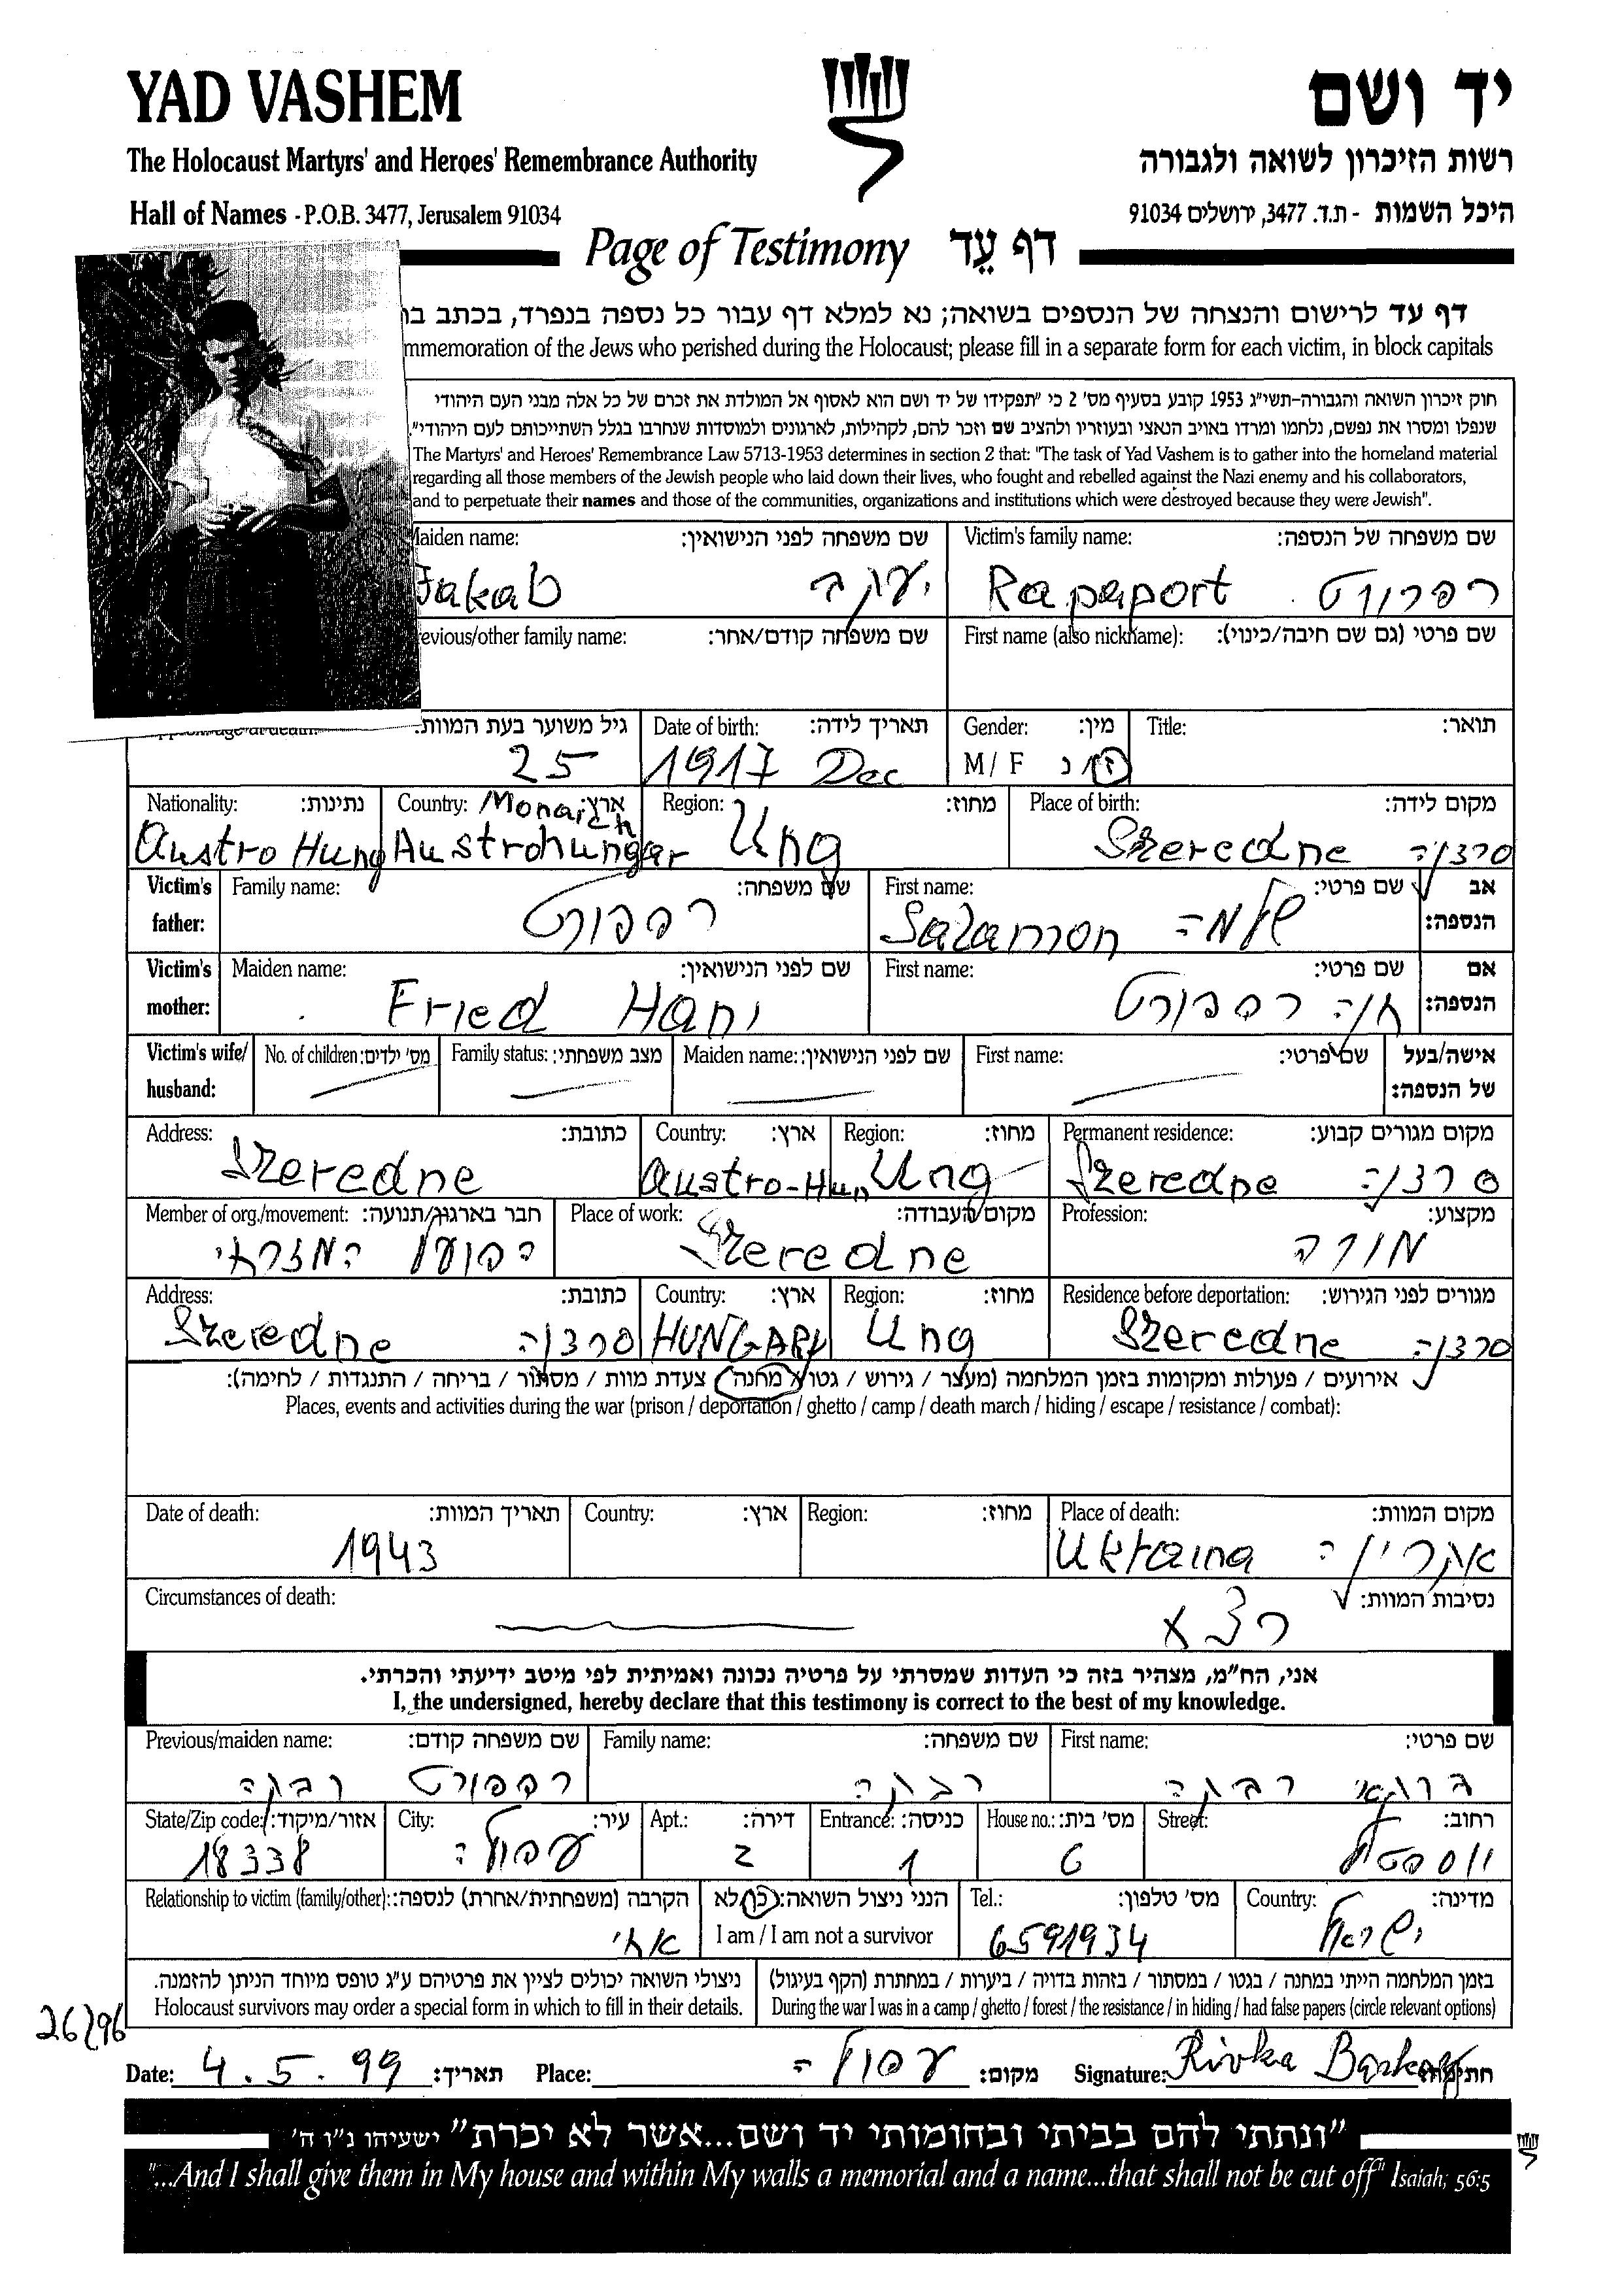 YAD VASHEM
יד ושם
The Holocaust Martyrs' and Heroes' Remembrance Authority
רשות הזיכרון לשואה ולגבורה
Hall of Names - P.O.B. 3477, Jerusalem 91034
היכל השמות - ת.ד. 3477, ירושלים 91034
Page of Testimony דף עֵד
דף עד לרישום והנצחה של הנספים בשואה; נא למלא דף עבור כל נספה בנפרד, בכתב
mmemoration of the Jews who perished during the Holocaust; please fill in a separate form for each victim, in block capitals
חוק זיכרון השואה והגבורה-תשי"ג 1953 קובע בסעיף מס' 2 כי "תפקידו של יד ושם הוא לאסוף אל המולדת את זכרם של כל אלה מבני העם היהודי
שנפלו ומסרו את נפשם, נלחמו ומרדו באויב הנאצי ובעוזריו ולהציב שם וזכר להם, לקהילות, לארגונים ולמוסדות שנחרבו בגלל השתייכותם לעם היהודי".
The Martyrs' and Heroes' Remembrance Law 5713-1953 determines in section 2 that: "The task of Yad Vashem is to gather into the homeland material
regarding all those members of the Jewish people who laid down their lives, who fought and rebelled against the Nazi enemy and his collaborators,
and to perpetuate their names and those of the communities, organizations and institutions which were destroyed because they were Jewish".
Maiden name: שם משפחה לפני הנישואין: Victim's family name: שם משפחה של הנספה:
Jakab יעקב Rapaport רפפורט
evious/other family name: שם משפחה קודם/אחר: First name (also nickname): שם פרטי (גם שם חיבה/כינוי):
גיל משוער בעת המוות: Date of birth: תאריך לידה: Gender: מין: Title: תואר:
25 1917 Dec M / F ז / נ
Nationality: נתינות: Country: ארץ: Region: מחוז: Place of birth: מקום לידה:
Austro Hung Monarch Austrohungar Ung Szeredne סרדניה
Victim's father: Family name: שם משפחה: First name: שם פרטי: אב הנספה:
רפפורט Salamon שלמה
Victim's mother: Maiden name: שם לפני הנישואין: First name: שם פרטי: אם הנספה:
Fried Hani חנה רפפורט
Victim's wife/ husband: No. of children: מס' ילדים: Family status: מצב משפחתי: Maiden name: שם לפני הנישואין: First name: שם פרטי: אישה/בעל של הנספה:
Address: כתובת: Country: ארץ: Region: מחוז: Permanent residence: מקום מגורים קבוע:
Szeredne Austro-Hun Ung Szeredne סרדניה
Member of org./movement: חבר בארגון/תנועה: Place of work: מקום העבודה: Profession: מקצוע:
הפועל המזרחי Szeredne מורה
Address: כתובת: Country: ארץ: Region: מחוז: Residence before deportation: מגורים לפני הגירוש:
Szeredne סרדניה HUNGARY Ung Szeredne סרדניה
אירועים / פעולות ומקומות בזמן המלחמה (מעצר / גירוש / גטו / מחנה / צעדת מוות / מסתור / בריחה / התנגדות / לחימה):
Places, events and activities during the war (prison / deportation / ghetto / camp / death march / hiding / escape / resistance / combat):
Date of death: תאריך המוות: Country: ארץ: Region: מחוז: Place of death: מקום המוות:
1943 Ukraina אוקריינה
Circumstances of death: נסיבות המוות:
אני, הח"מ, מצהיר בזה כי העדות שמסרתי על פרטיה נכונה ואמיתית לפי מיטב ידיעתי והכרתי.
I, the undersigned, hereby declare that this testimony is correct to the best of my knowledge.
Previous/maiden name: שם משפחה קודם: Family name: שם משפחה: First name: שם פרטי:
רפפורט רבקה רבקה רבקה
State/Zip code: אזור/מיקוד: City: עיר: Apt.: דירה: Entrance: כניסה: House no.: מס' בית: Street: רחוב:
18338 עפולה 2 1 6
Relationship to victim (family/other): הקרבה (משפחתית/אחרת) לנספה: הנני ניצול השואה: כן/לא Tel.: מס' טלפון: Country: מדינה:
אחי I am / I am not a survivor 6591934 ישראל
ניצולי השואה יכולים לציין את פרטיהם ע"ג טופס מיוחד הניתן להזמנה. בזמן המלחמה הייתי במחנה / בגטו / במסתור / בזהות בדויה / ביערות / במחתרת (הקף בעיגול)
Holocaust survivors may order a special form in which to fill in their details. During the war I was in a camp / ghetto / forest / the resistance / in hiding / had false papers (circle relevant options)
26/96
Date: 4.5.99 תאריך: Place: עפולה מקום: Signature: Rivka
"ונתתי להם בביתי ובחומותי יד ושם...אשר לא יכרת" ישעיהו נ"ו ה'
"...And I shall give them in My house and within My walls a memorial and a name...that shall not be cut off" Isaiah, 56:5